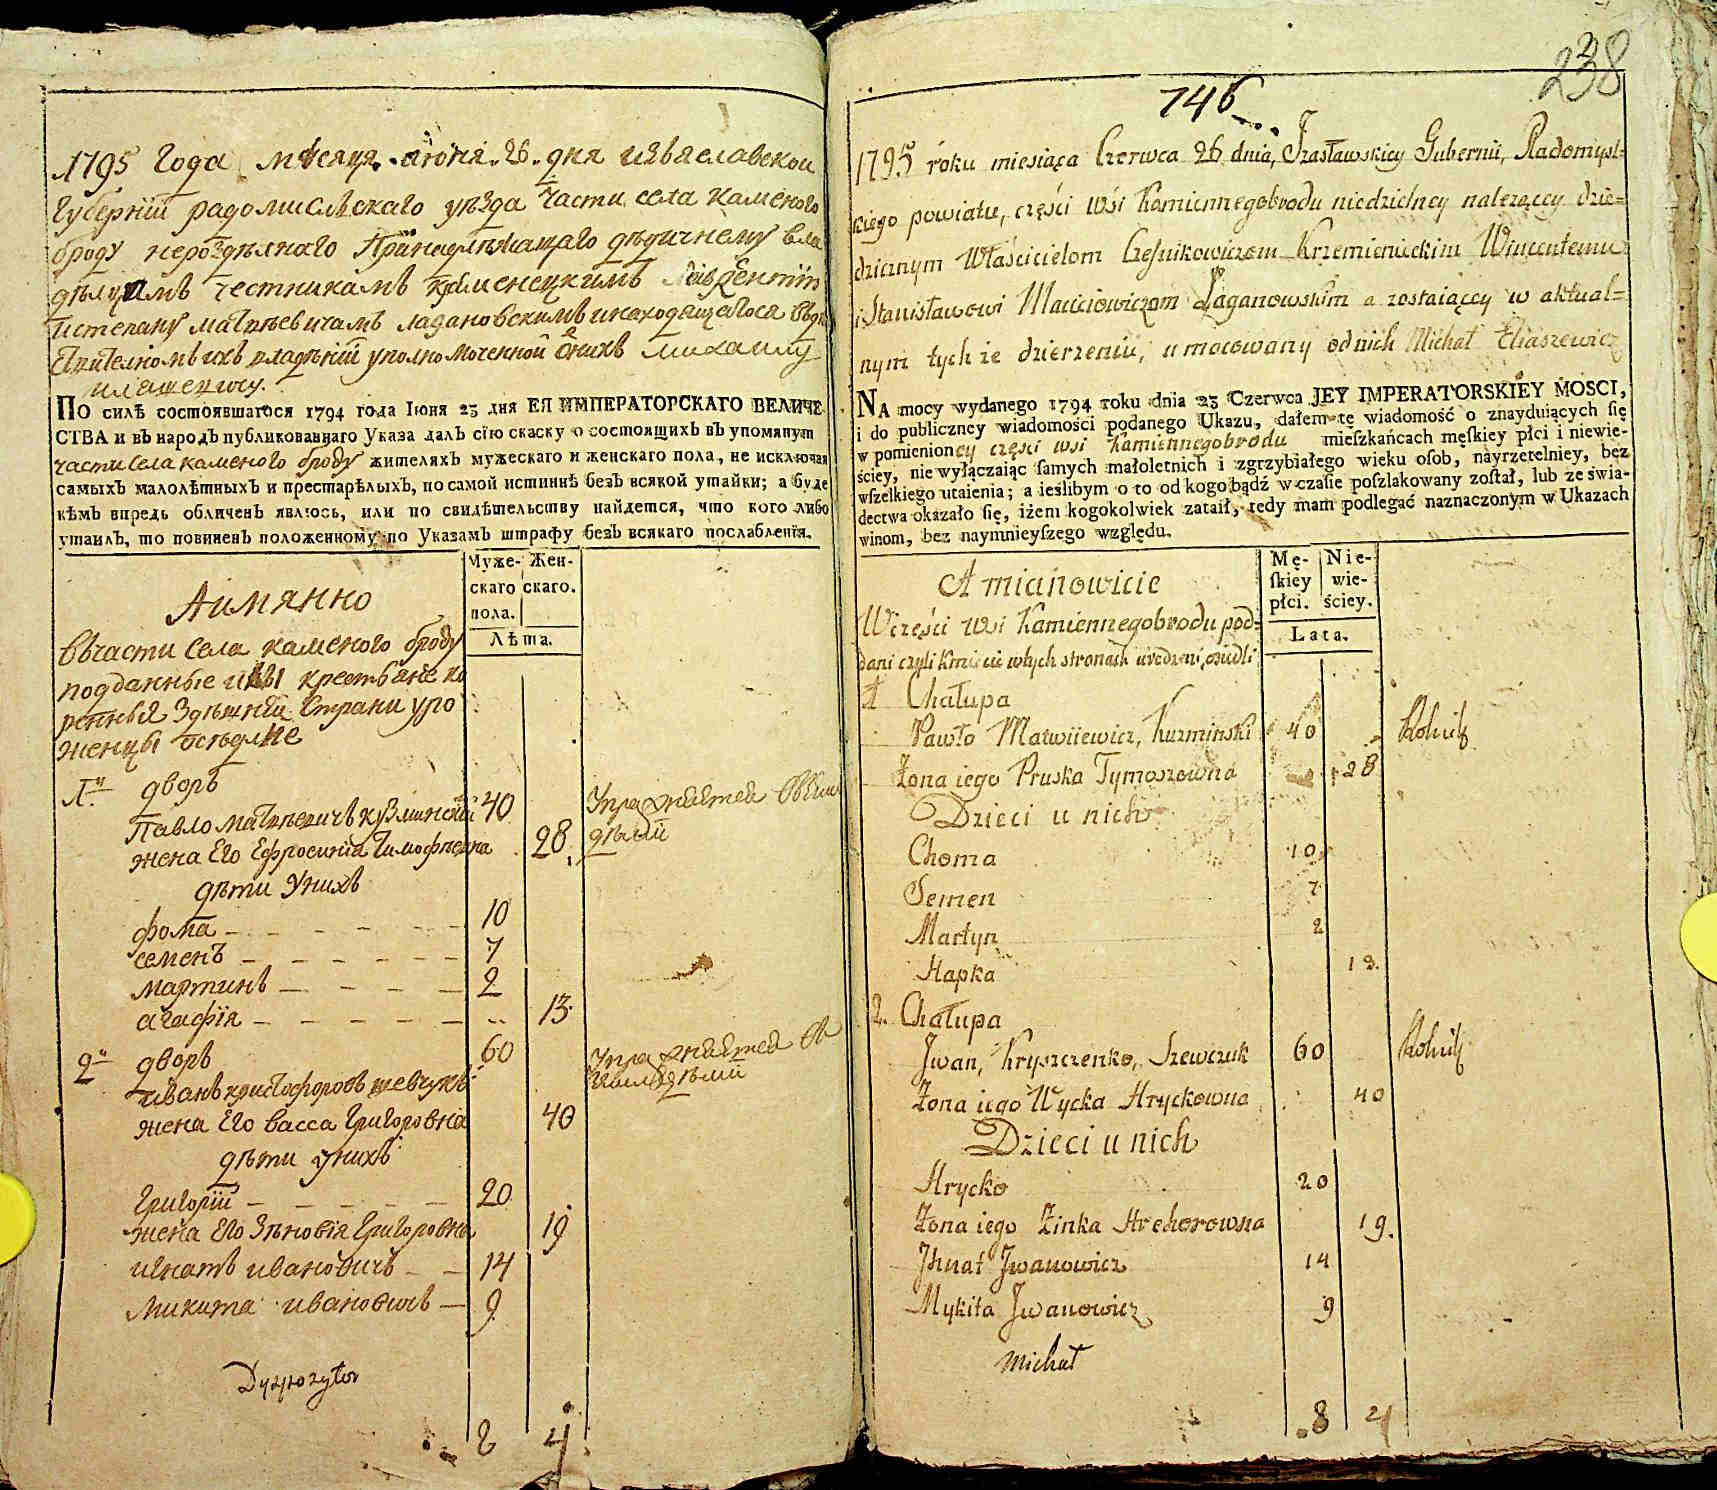 1795 года мѣсяца июня 26 дня изъяславской
губернїи радомисльскаго уѣзда части села каменого
броду нероздѣлнаго принадлѣжащаго дѣдичнему вла
дѣлцамъ честникамъ кременецкимъ
истепану матвѣевичамъ лагановскимъ инаходящегося
ихъ владѣнїй уполномоченной ѿ нихъ михаилу
илашевичу.
По силѣ состоявшагося 1794 года Іюня 23 дня ЕЯ ИМПЕРАТОРСКАГО ВЕЛИЧЕ-
СТВА и въ народъ публикованнаго Указа далъ сїю скаску о состоящихъ въ упомянутой
части села каменого броду жителяхъ мужескаго и женскаго пола, не исключая
самыхъ малолѣтныхъ и престарѣлыхъ, по самой истиннѣ безъ всякой утайки; а буде
кѣмъ впредь обличенъ явлюсь, или по свидѣтельству найдется, что кого либо
утаилъ, то повиненъ положенному по Указамъ штрафу безъ всякаго послабленїя.
Муже-скаго пола. Жен-скаго.
Лѣта.
Аимянно
Вчасти села каменого броду
подданные или крестьяне ко
ренныя здѣшнїй страни уро
женцы осѣдлїе
1й дворъ
Павло матвѣевичъ кузминскїй 40
жена его Ефросинїя Тимофѣевна 28
дѣти унихъ
фома 10
семенъ 7
мартинъ 2
агафїя 13
2й дворъ 60
иванъ христофоровъ шевчукъ
жена его васса григоровна 40
дѣти унихъ
григорїй 20
жена его зѣновїя григоровна 19
игнатъ ивановичъ 14
микита ивановичъ 9
Dyspozytor
8 4
238
746
1795 roku miesiąca Czerwca 26 dnia, Izasławskiey Gubernii, Radomysl=
kiego powiatu, części wsi Kamiennegobrodu niedzielney nalezącey dzie=
dzicznym Właścicielom Cześnikowiczom Krzemienieckim Wincentemu
i Stanisławowi Maciciowiczom Łaganowskim a zostaiącey w aktual=
nym tych ze dzierzeniu, umocowany od nich Michał Eliaszewicz
NA mocy wydanego 1794 roku dnia 23 Czerwca JEY IMPERATORSKIEY MOSCI,
i do publiczney wiadomości podanego Ukazu, dałem tę wiadomość o znayduiących się
w pomienioney części wsi Kamiennegobrodu mieszkańcach męskiey płci i niewie-
ściey, nie wyłączaiąc samych małoletnich i zgrzybiałego wieku osob, nayrzetelniey, bez
wszelkiego utaienia; a ieślibym o to od kogo bądź w czasie poszlakowany został, lub ze świa-
dectwa okazało się, iżem kogokolwiek zataił, tedy mam podlegać naznaczonym w Ukazach
winom, bez naymnieyszego względu.
Mę-skiey płci. Nie-wie-ściey.
Lata.
A mianowicie
W części wsi Kamiennegobrodu pod=
dani czyli kmiecie wtych stronach urodzeni, osiedli
1 Chałupa
Pawło Matwiiewicz, Kuzminski 40 Rolnik
Żona iego Pruska Tymoszowna 28
Dzieci u nich
Choma 10
Semen 7
Martyn 2
Hapka 13
2. Chałupa
Jwan, Kryszczenko, Szewczuk 60 Rolnik
Żona iego Wycka Hryckowna 40
Dzieci u nich
Hrycko 20
Żona iego Zinka Hrehorowna 19.
Jhnat Jwanowicz 14
Mykita Jwanowicz 9
Michał
8 4